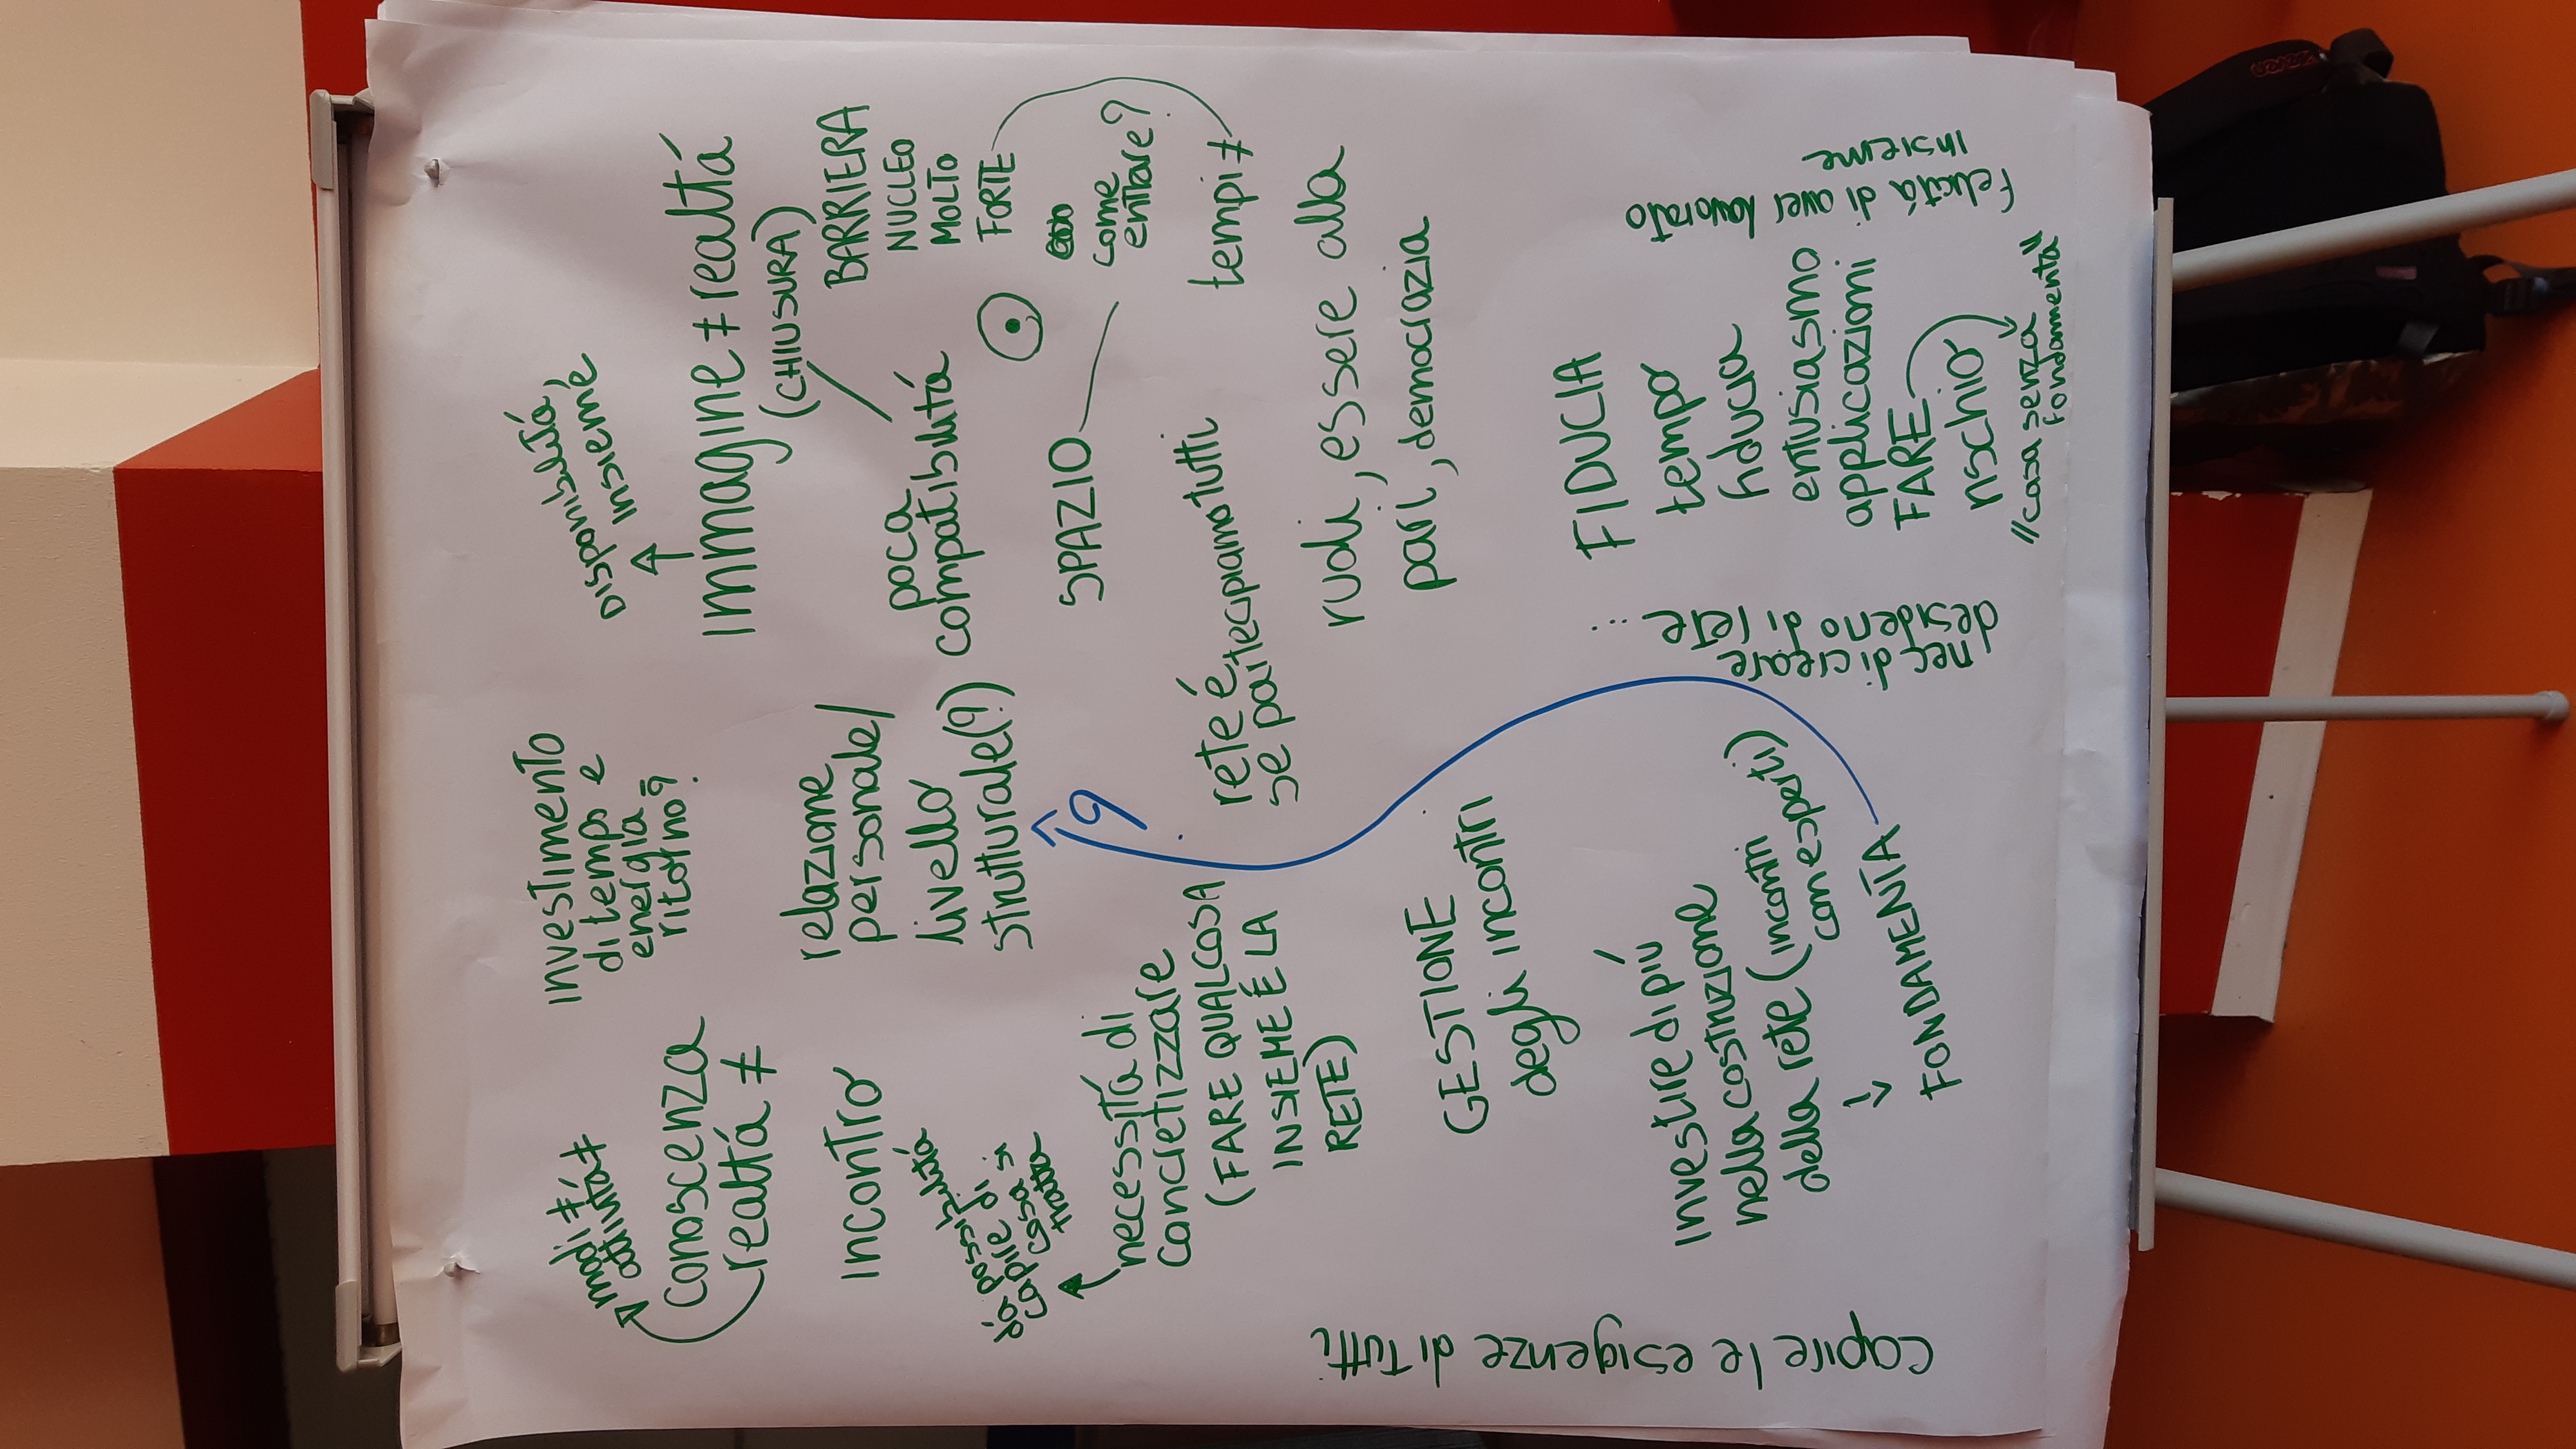 modi ≠
attivitá ≠
conoscenza
realtá ≠
investimento
di tempo e
energia =
ritorno?
Disponibilitá,
insieme
immagine ≠ realtá
(CHIUSURA)
incontro
relazione
personale/
livello
strutturale(?)
poca
compatibilitá
BARRIERA
NUCLEO
MOLTO
FORTE
come
entrare?
tempi ≠
SPAZIO
dá possibilitá
capire di
cosa si
tratta
necessitá di
concretizzare
(FARE QUALCOSA
INSIEME É LA
RETE)
?
rete é
se partecipiamo tutti
ruoli, essere alla
pari, democrazia
capire le esigenze di tutti
GESTIONE
degli incontri
investire di piú
nella costruzione
della rete (incontri
con esperti)
FONDAMENTA
nec. di creare
desiderio di rete...
FIDUCIA
tempo
fiducia
entusiasmo
applicazioni
FARE
rischio
"casa senza
fondamenta"
felicitá di aver lavorato
insieme